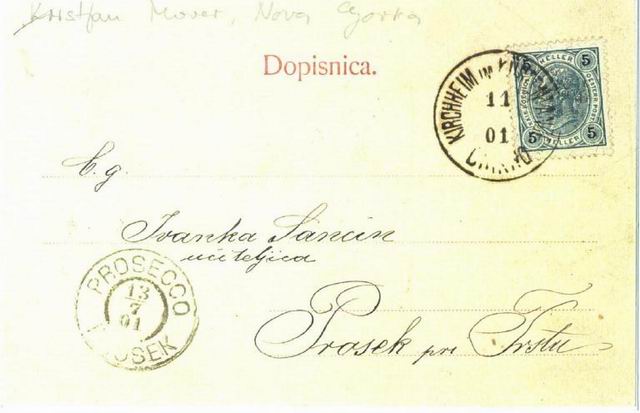 Kristjan Mover, Nova Gorica
Dopisnica.
KIRCHHEIM IM
11
01
HELLER
5
5
5
HELLER
C. g.
Ivanka Sancin
učiteljica
PROSECCO
13
7
01
PROSEK
Prosek pri Trstu